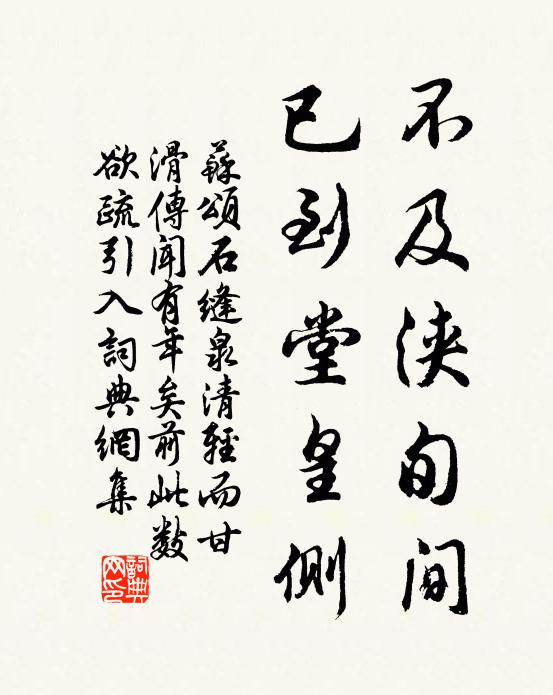 不及浹旬間
已到堂皇側
蘇頌石縫泉清輕而甘
滑傳聞有年矣前此數
欲疏引入詞典網集
詞典網印